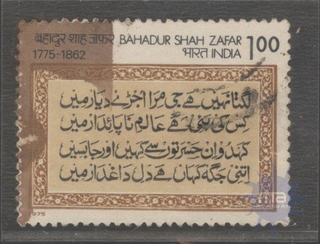 बहादुर शाह ज़फ़र BAHADUR SHAH ZAFAR
1775-1862 भारत INDIA 1.00
لگتا نہیں ھے جی مرا اجڑے دیار میں
کس کی بنی ھے عالمِ ناپائدار میں
کہدو ان حسرتوں سے کہیں اور جا بسیں
اتنی جگہ کہاں ھے دلِ داغدار میں
1975